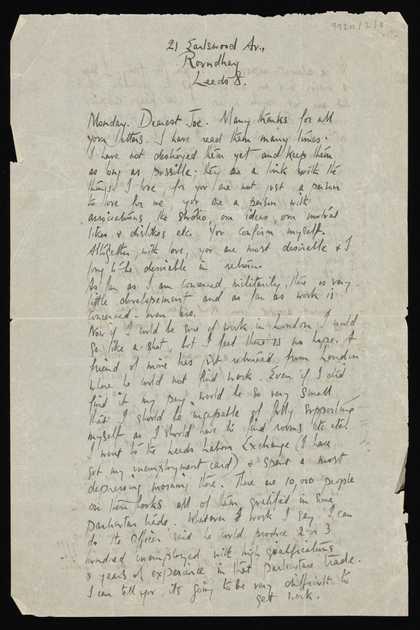 9920/2/3
21 Earlswood Av.,
Roundhay
Leeds 8.
Monday. Dearest Joe. Many thanks for all
your letters. I have read them many times.
I have not destroyed them yet and keep them
as long as possible. They are a link with the
things I love, for you are not just a person
to love for me, you are a person with
associations, the studio, our ideas, our mutual
likes & dislikes etc. You confirm myself.
Altogether, with love, you are most desirable & I
long to be desirable in return.
As far as I am concerned, militarily, there is very
little developement and as far as work is
concerned - even less.
Now if I could be sure of work in London I would
go like a shot, but I feel there is no hope. A
friend of mine has just returned from London
where he could not find work. Even if I did
find it my pay would be so very small
that I should be incapable of fully supporting
myself as I should have to find rooms etc etc.
I went to the Leeds Labour Exchange (I have
got my unemployment card) & spent a most
depressing morning there. There are 10,000 people
on their books all of them qualified in some
particular trade. Whatever work I say I can
do the officer said he could produce 2 or 3
hundred unemployed with high qualifications
& years of experience in that particular trade.
I can tell you its going to be very difficult to
get work.